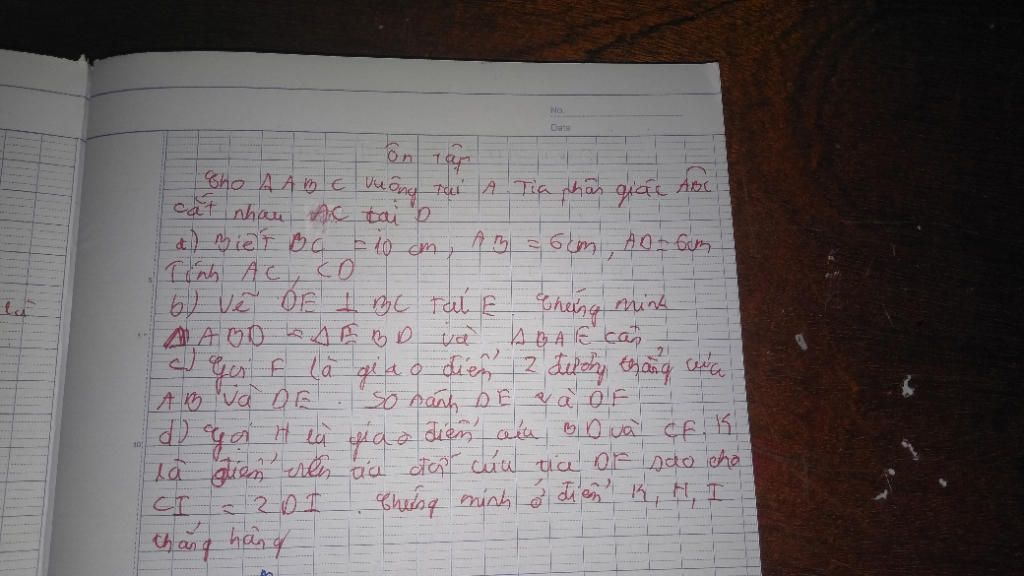 No.
Date
Ôn tập
Cho Δ ABC vuông tại A Tia phân giác ABC
cắt nhau AC tại D
a) Biết BC = 10 cm, AB = 6cm, AD = 6cm
Tính AC, CD
b) Vẽ DE ⊥ BC tại E. Chứng minh
Δ ABD = ΔEBD và ΔBAE cân
c) Gọi F là giao điểm 2 đường thẳng của
AB và DE. So sánh DE và DF
d) Gọi H là giao điểm của BD và CF. K
là điểm trên tia đối của tia DF sao cho
CI = 2DI. Chứng minh 3 điểm K, H, I
thẳng hàng